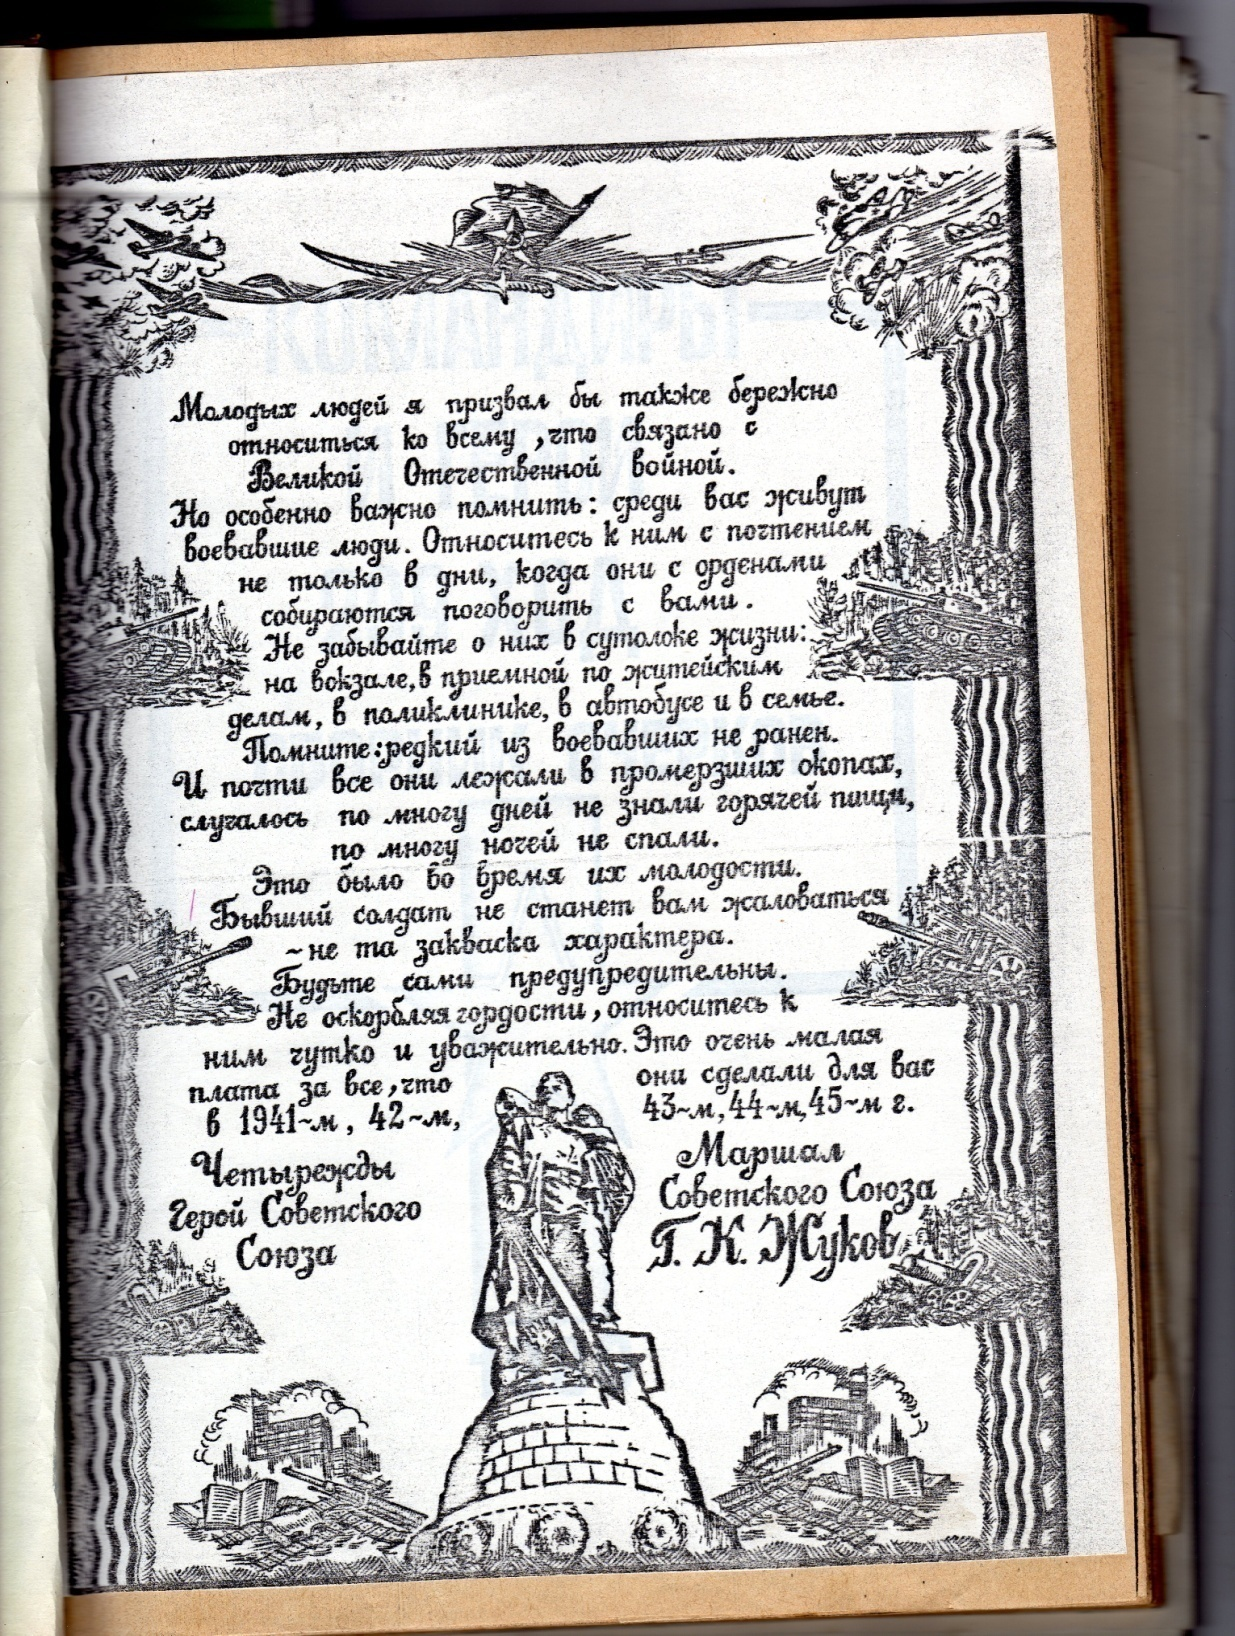 Молодых людей я призвал бы также бережно
относиться ко всему, что связано с
Великой Отечественной войной.
Но особенно важно помнить: среди вас живут
воевавшие люди. Относитесь к ним с почтением
не только в дни, когда они с орденами
собираются поговорить с вами.
Не забывайте о них в сутолоке жизни:
на вокзале, в приемной по житейским
делам, в поликлинике, в автобусе и в семье.
Помните: редкий из воевавших не ранен.
И почти все они лежали в промерзших окопах,
случалось по многу дней не знали горячей пищи,
по многу ночей не спали.
Это было во время их молодости.
Бывший солдат не станет вам жаловаться
- не та закваска характера.
Будьте сами предупредительны.
Не оскорбляя гордости, относитесь к
ним чутко и уважительно. Это очень малая
плата за все, что они сделали для вас
в 1941-м, 42-м, 43-м, 44-м, 45-м г.
Четырежды
Герой Советского
Союза
Маршал
Советского Союза
Г. К. Жуков